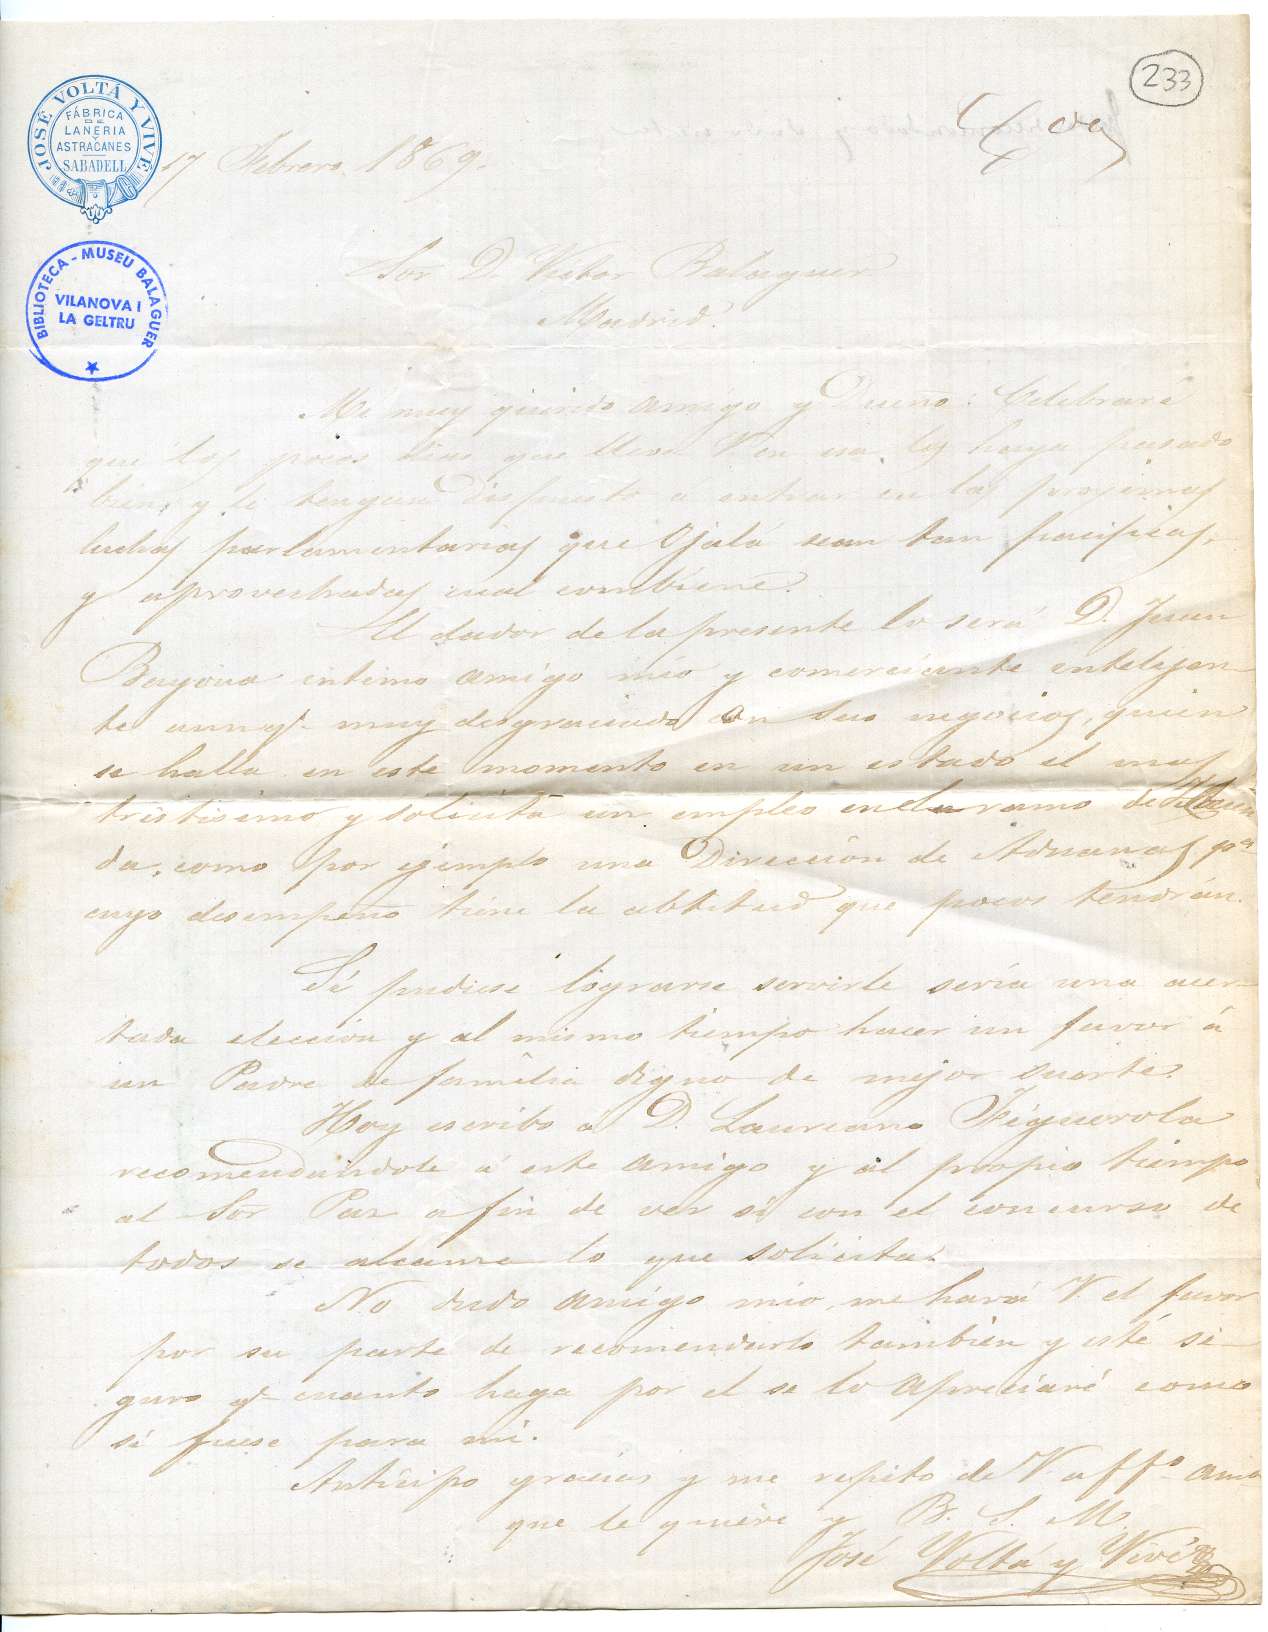 233
JOSÉ VOLTÁ Y VIVÉ
FÁBRICA
DE
LANERIA
Y
ASTRACANES
SABADELL
17 Febrero 1869.
BIBLIOTECA - MUSEU BALAGUER
VILANOVA I
LA GELTRU
Sor D. Victor Balaguer
Madrid.
Mi muy querido amigo y Dueño: Celebraré
que los pocos dias que lleva V en esa los haya pasado
bien, y le tengan dispuesto a entrar en las proximas
luchas parlamentarias que Ojalá sean tan pacificas,
y aprovechadas cual combiene.
El dador de la presente lo será D. Juan
Bayona intimo amigo mio y comerciante entelijen-
te aunq. muy desgraciado en sus negocios, quien
se halla en este momento en un estado el mas
tristisimo y solicita un empleo en el ramo de Hacien
da, como por ejemplo una Dirección de Aduanas, pa
cuyo desempeño tiene la abtitud que pocos tendrán.
Si pudiese lograrse servirle sería una acer-
tada eleccion y al mismo tiempo hacer un favor á
un Padre de familia digno de mejor suerte.
Hoy escribo á D. Laureano Figuerola
recomendandole á este amigo y al propio tiempo
al Sor Paz a fin de ver si con el concurso de
todos se alcanze lo que solicita.
No dudo amigo mio, me hará V. el favor
por su parte de recomendarlo tambien y esté se-
guro q. cuanto haga por el se lo apreciaré como
si fuese para mi.
Anticipo gracias y me repito de V. affo amio
que le quiere y B. S. M.
José Voltá y Vivé